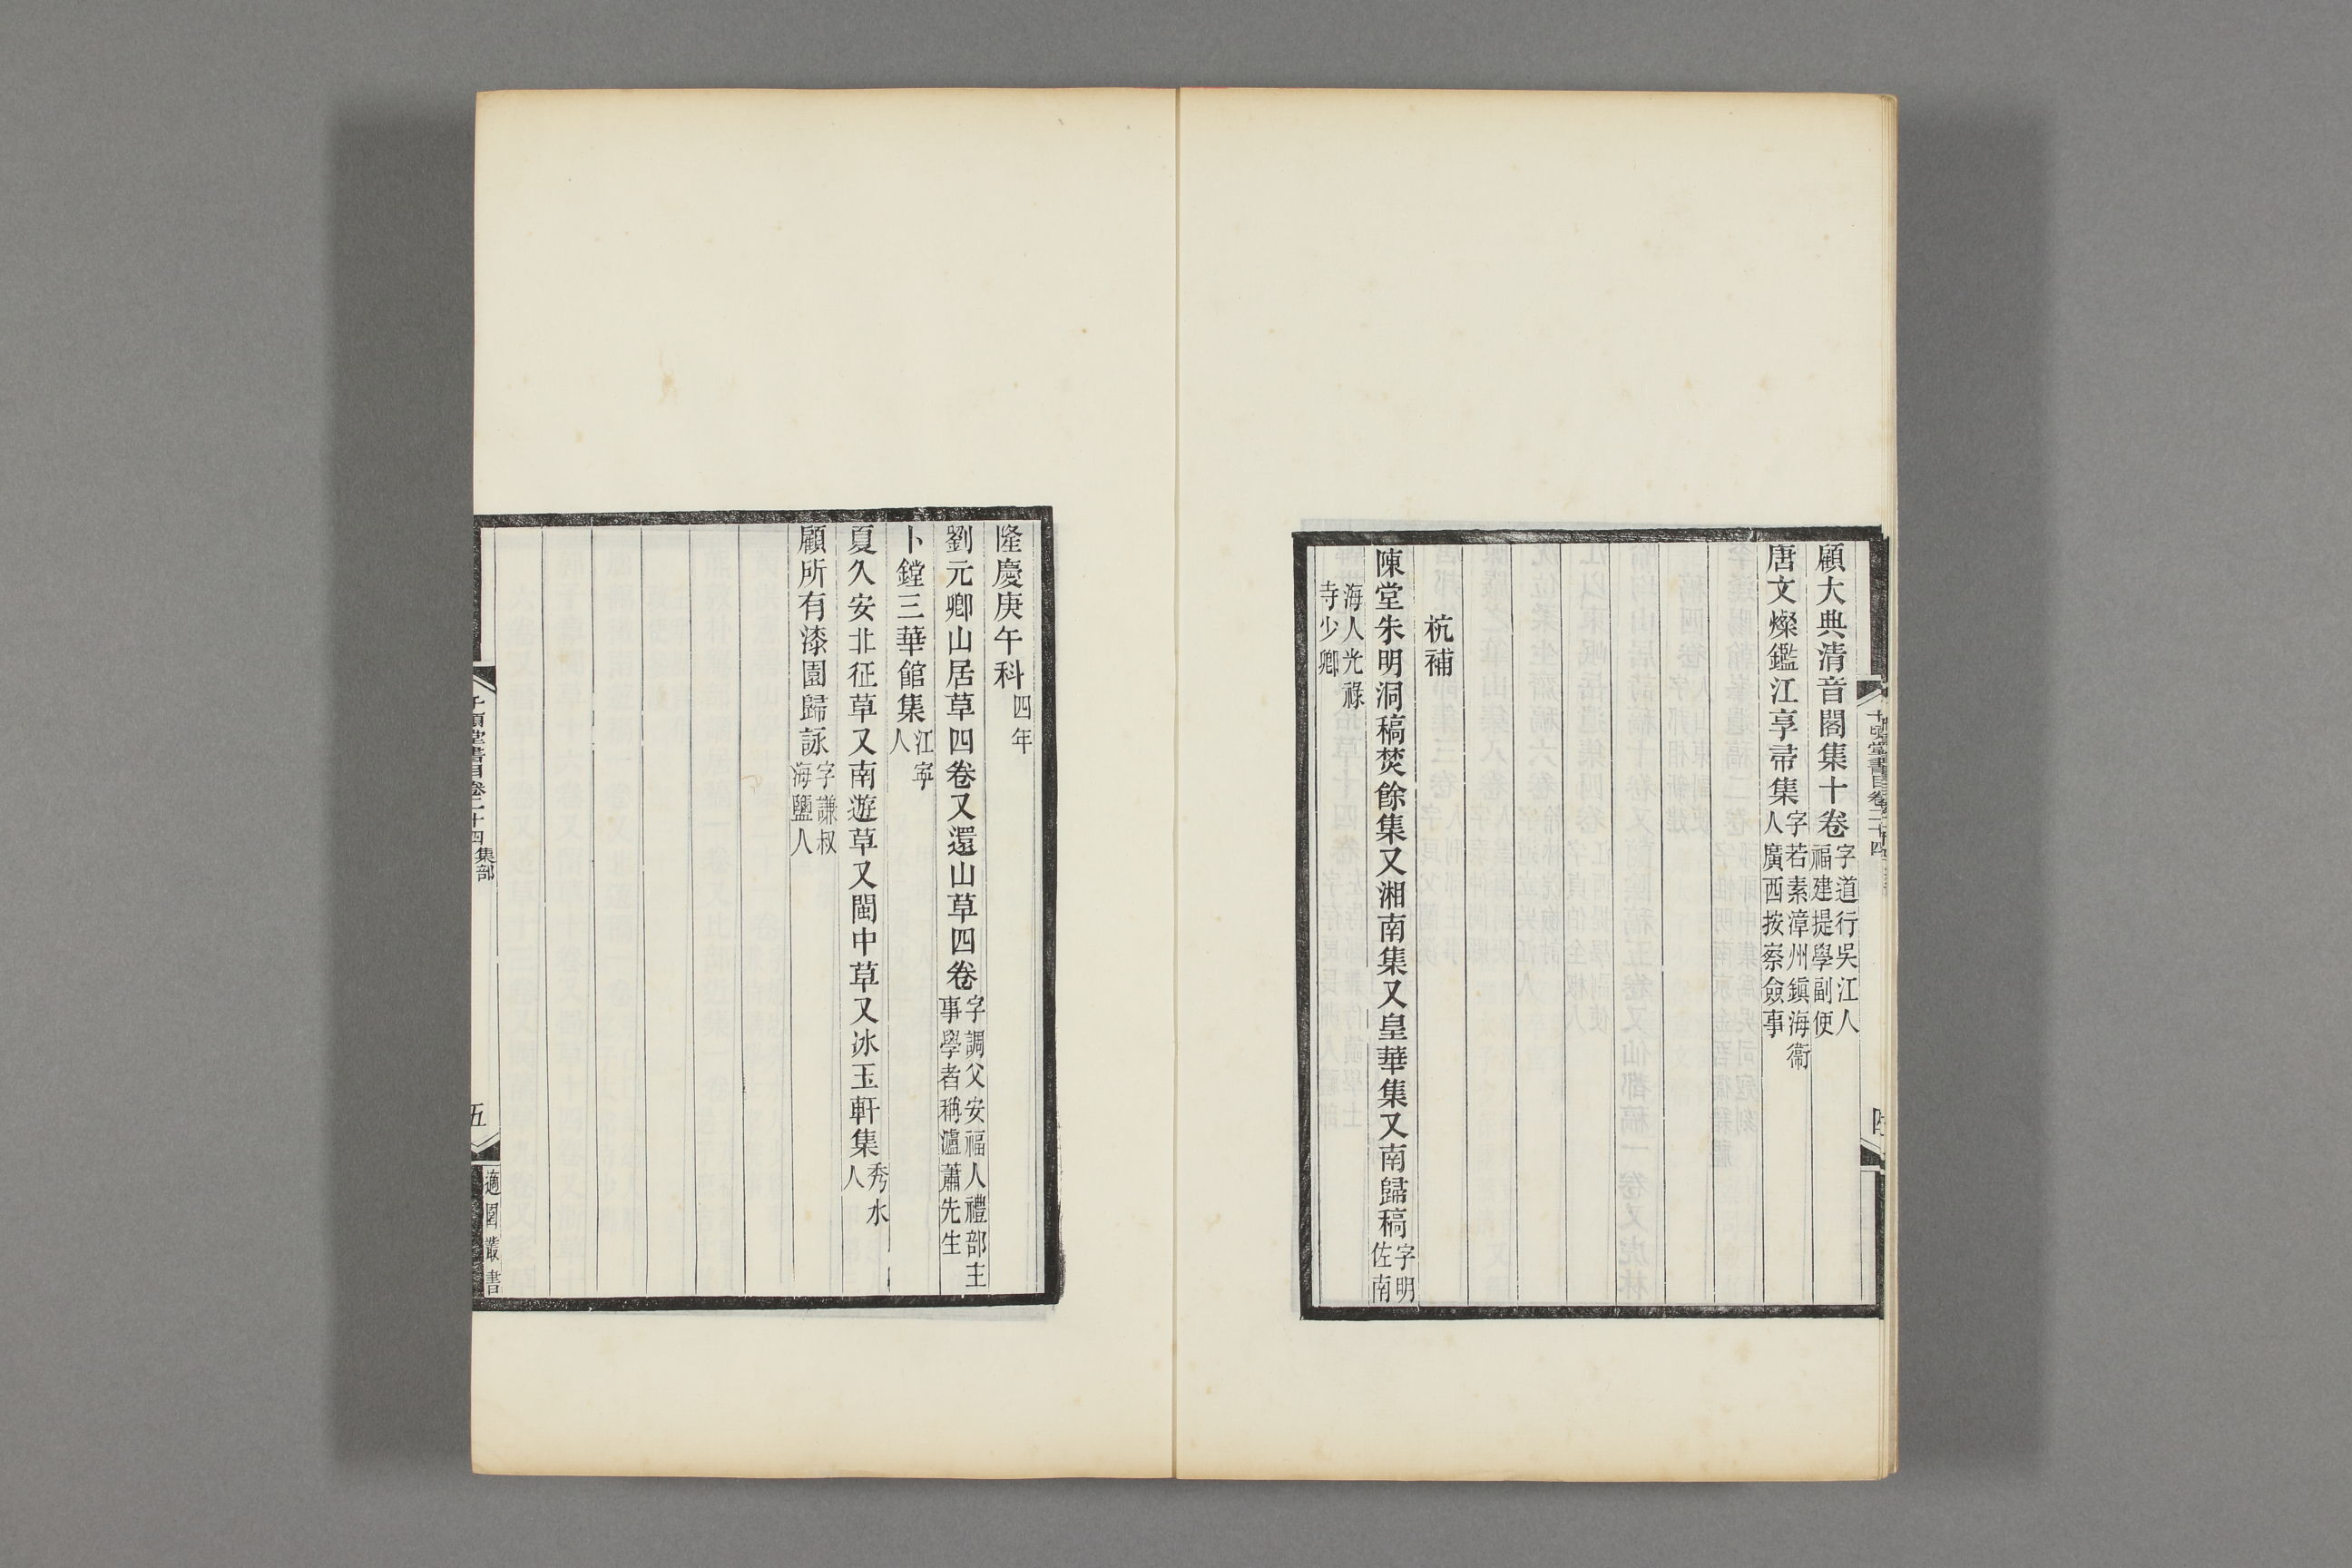 顧大典清音閣集十卷字道行吳江人福建提學副使
唐文燦鑑江享帚集字若素漳州鎮海衞人廣西按察僉事
杭補
陳堂朱明洞稿焚餘集又湘南集又皇華集又南歸稿字明佐南
海人光祿寺少卿
千頃堂書目卷二十四
隆慶庚午科四年
劉元卿山居草四卷又還山草四卷字調父安福人禮部主事學者稱瀘蕭先生
卜鏜三華館集江寧人
夏久安北征草又南遊草又閩中草又冰玉軒集秀水人
顧所有漆園歸詠字謙叔海鹽人
千頃堂書目卷二十四集部
五
適園叢書